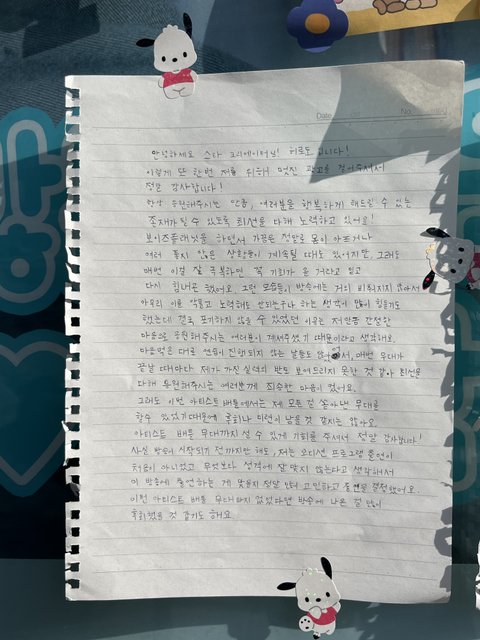 Date No.
안녕하세요 스타 크리에이터님! 히로토입니다!
이렇게 또 한번 저를 위해 멋진 광고를 걸어주셔서
정말 감사합니다!
항상 응원해주시는 만큼, 여러분을 행복하게 해드릴 수 있는
존재가 될 수 있도록 최선을 다해 노력하고 있어요!
보이즈플래닛을 하면서 가끔은 정말로 몸이 아프거나
여러 좋지 않은 상황들이 계속될 때도 있어지만, 그래도
매번 이걸 잘 극복하면 꼭 기회가 올 거라고 믿고
다시 힘내곤 했어요. 그런 모습들이 방송에는 거의 비춰지지 않아서
아무리 이를 악물고 노력해도 안되는구나 하는 생각에 많이 힘들기도
했는데 결국 포기하지 않을 수 있었던 이유는 저만큼 간절한
마음으로 응원해주시는 여러분이 계셔주셨기 때문이라고 생각해요.
마음먹은 대로 연습이 진행되지 않는 날들도 많아서, 매번 무대가
끝날 때마다 제가 가진 실력의 반도 보여드리지 못한 것 같아 최선을
다해 응원해주시는 여러분께 죄송한 마음이 컸어요.
그래도 이번 아티스트 배틀에서는 제 모든 걸 쏟아낸 무대를
할 수 있었기 때문에 후회나 미련이 남을 것 같지는 않아요.
아티스트 배틀 무대까지 설 수 있게 기회를 주셔서 정말 감사합니다!
사실 방송이 시작되기 전까지만 해도, 저는 오디션 프로그램 출연이
처음이 아니었고 무엇보다 성격에 잘 맞지 않는다고 생각해서
이 방송에 출연하는 게 맞을지 정말 많이 고민하고 출연을 결정했어요.
이번 아티스트 배틀 무대마저 없었다면 방송에 나온 걸 많이
후회했을 것 같기도 해요.